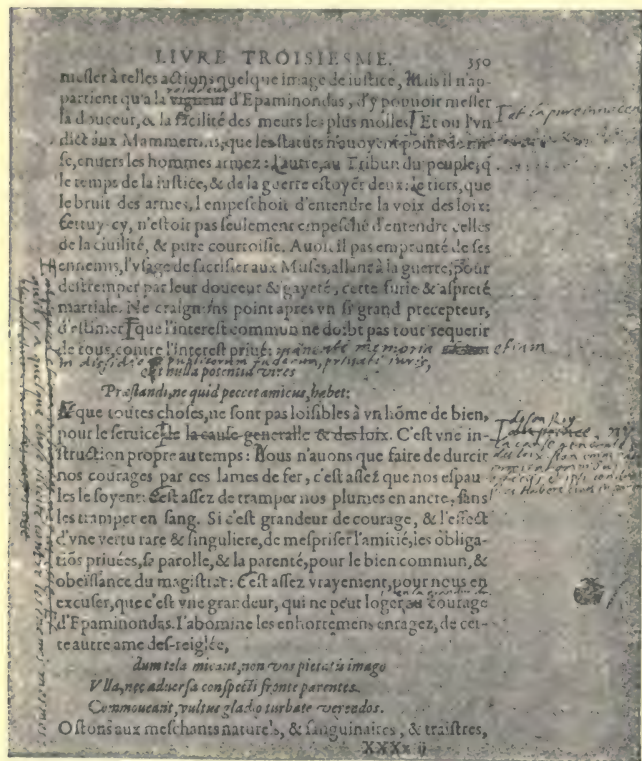 LIVRE TROISIESME. 350
mesler à telles actions quelque image de iustice, Mais il n'ap-
roideur
partient qu'a la vigueur d'Epaminondas, d'y pouuoir mesler
la douceur, & la facilité des meurs les plus molles, Et ou l'vn
et la pure innocence
dict aux Mammertins, que les statuts n'auoyent point de mi-
se, enuers les hommes armez: L'autre, au Tribun du peuple, q̃
le temps de la iustice, & de la guerre estoyẽt deux: Le tiers, que
le bruit des armes, l'empeschoit d'entendre la voix des loix:
Cettuy-cy, n'estoit pas seulement empesché d'entendre celles
de la ciuilité, & pure courtoisie. Auoit il pas emprunté de ses
ennemis, l'vsage de sacrifier aux Muses, allant à la guerre, pour
destremper par leur douceur & gayeté, cette furie & aspreté
martiale. Ne craignons point apres vn si grand precepteur,
d'estimer que l'interest commun ne doibt pas tout requerir
de tous, contre l'interest priué: manente memoria etiam
in dissidio publicorum fœderum, priuati iuris,
et nulla potentia vires
Præstandi, ne quid peccet amicus, habet:
Et que toutes choses, ne sont pas loisibles à vn hõme de bien,
pour le seruice de la cause generalle & des loix. C'est vne in-
de son Roy
la cause generale
des loix
struction propre au temps: Nous n'auons que faire de durcir
nos courages par ces lames de fer, c'est assez que nos espau
les le soyent: C'est assez de tramper nos plumes en ancre, sans
les tramper en sang. Si c'est grandeur de courage, & l'effect
d'vne vertu rare & singuliere, de mespriser l'amitié, les obliga-
tiõs priuées, sa parolle, & la parenté, pour le bien commun, &
obeissance du magistrat: C'est assez vrayement, pour nous en
excuser, que c'est vne grandeur, qui ne peut loger au courage
d'Epaminondas. I'abomine les enhortemens enragez, de cet-
te autre ame des-reiglée,
dum tela micant, non vos pietatis imago
Vlla, nec aduersa conspecti fronte parentes
Commoueant, vultus gladio turbate verendos.
Ostons aux meschants naturels, & sanguinaires, & traistres,
XXXx ij